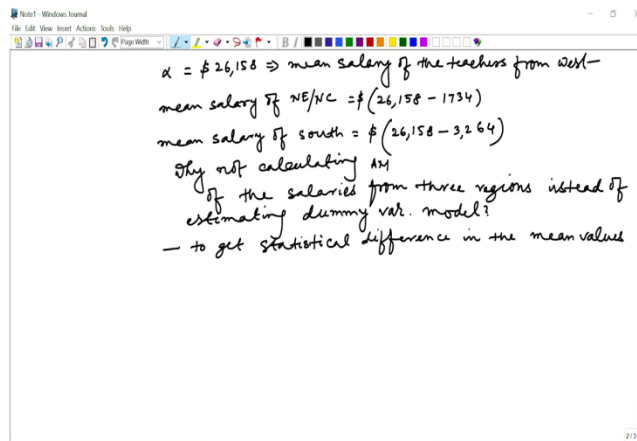 Note1 - Windows Journal
File Edit View Insert Actions Tools Help
Page Width
B I
α = $ 26,158 ⇒ mean salary of the teachers from west
mean salary of NE/NC = $ (26,158 - 1734)
mean salary of south = $ (26,158 - 3,264)
Why not calculating AM
of the salaries from three regions istead of
estimating dummy var. model?
— to get statistical difference in the mean values
2/3